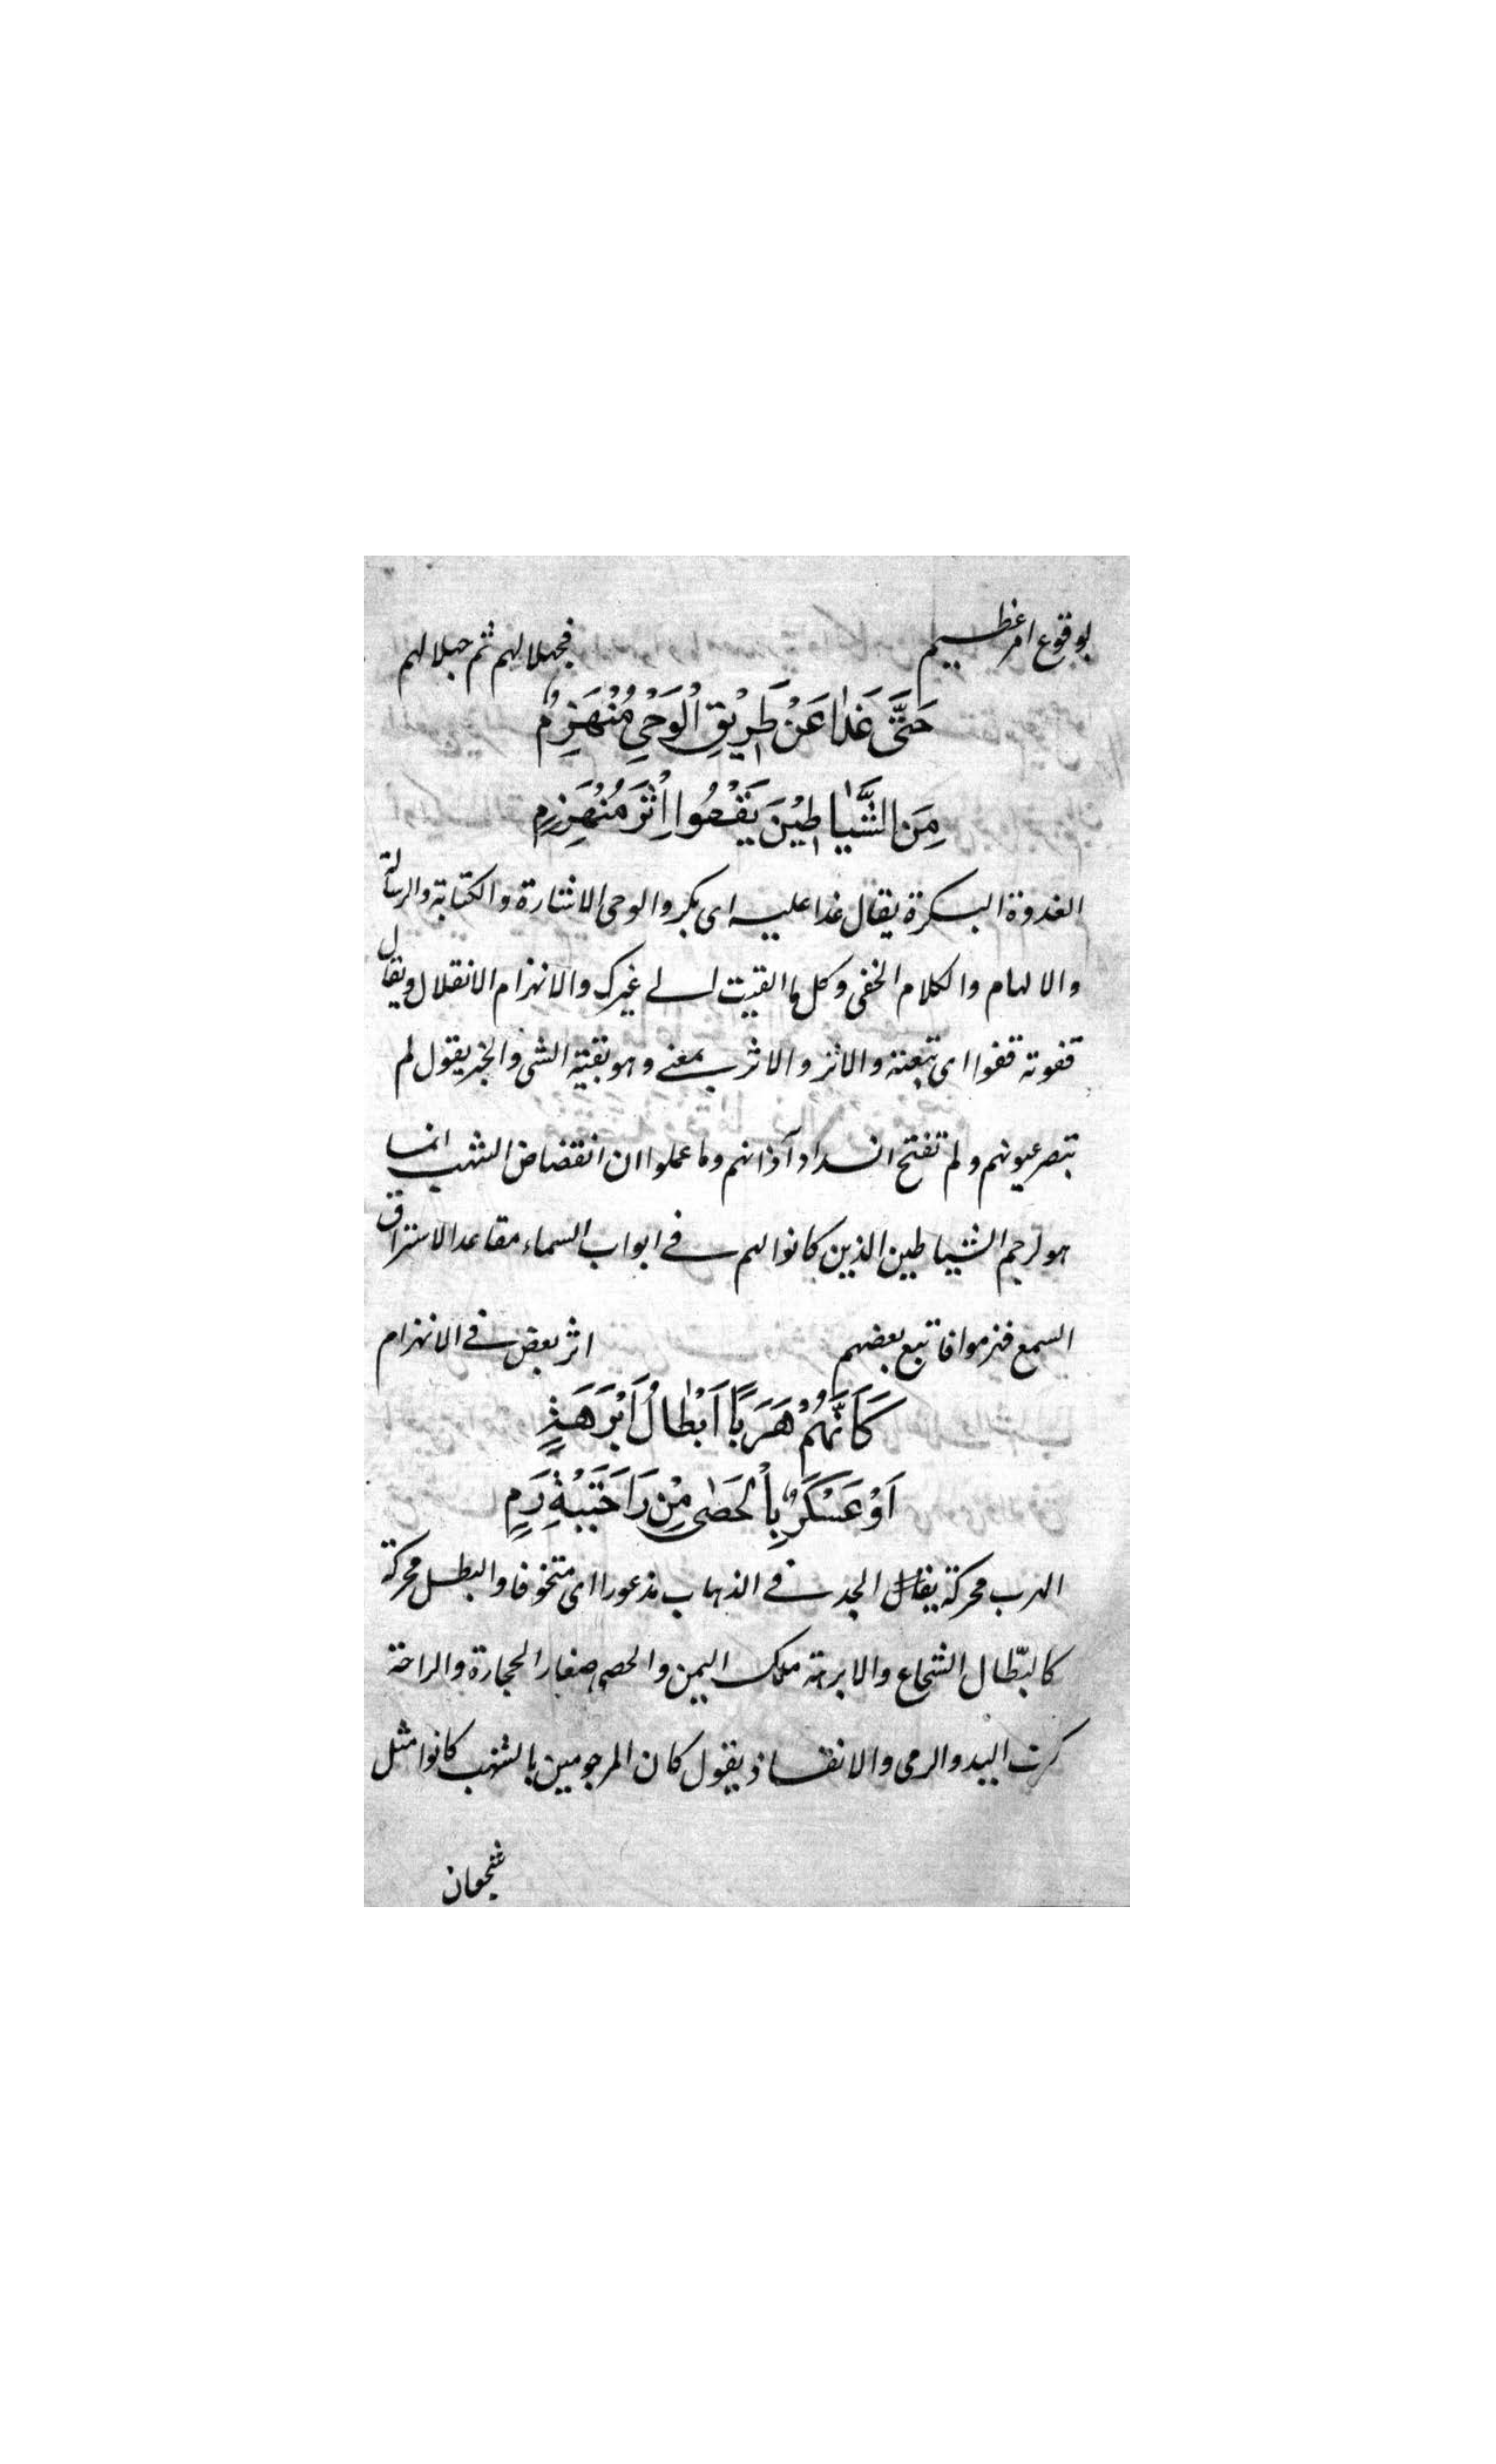 بوقوع امر عظيم فجهلا لهم ثم جهلا لهم
حَتَّى غَدَا عَنْ طَرِيْقِ الْوَحْيِ مُنْهَزِمٌ
مِنَ الشَّيَاطِيْنَ يَقْفُوا اِثْرَ مُنْهَزِمٍ
الغدوة البكرة يقال غدا عليه اى بكر والوحى الاشارة والكتابة والرسالة
والالهام والكلام الخفى وكل ما القيت الى غيرك والانهزام الانفلال ويقال
قفوته قفوا اى تبعته والاثر والاثر بمعنى وهو بقية الشى والخبر يقول لم
تبصر عيونهم ولم تفتح انسداد آذانهم وما عملوا ان انقضاض الشهب انما
هو لرجم الشياطين الذين كانوا لهم فى ابواب السماء مقاعد الاستراق
السمع فهزموا فاتبع بعضهم اثر بعض فى الانهزام
كَاَنَّهُمْ هَرَبًا اَبْطَالُ اَبْرَهَةٍ
اَوْ عَسْكَرٌ بِالْحَصٰى مِنْ رَاحَتَيْهِ رَمٍ
الهرب محركة يقال الجد فى الذهاب مذعورا اى متخوفا والبطل محركة
كالبّطال الشجاع والابرهة ملك اليمن والحصى صغار الحجارة والراحة
اليد والرمى والانفاذ يقول كان المرجومين بالشهب كانوا مثل
شجعان